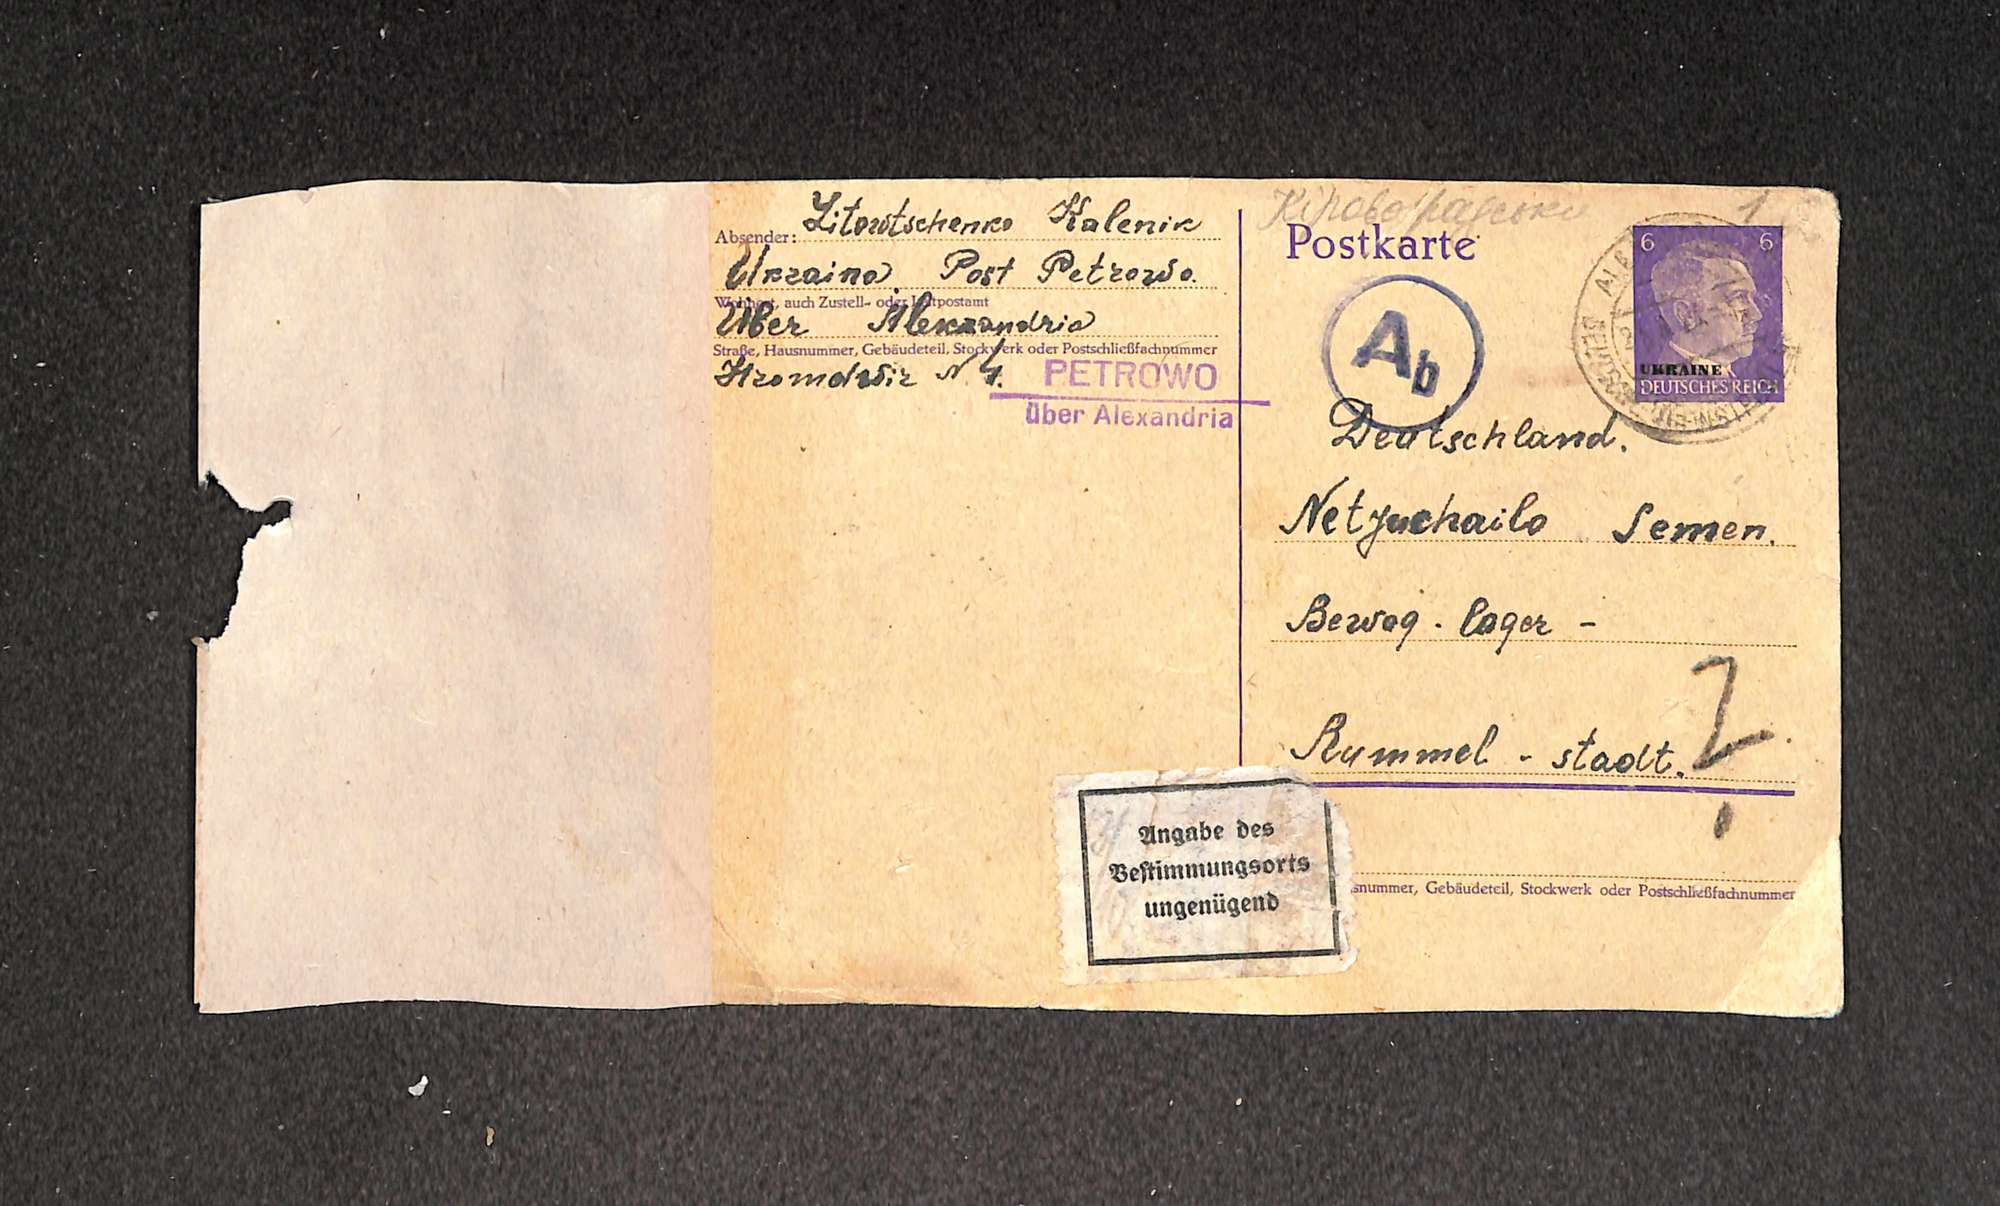 Absender: Litowtschenko Kalenik
Ukraine. Post Petrowo.
Wohnort, auch Zustell- oder Leitpostamt
Über Alexandria
Straße, Hausnummer, Gebäudeteil, Stockwerk oder Postschließfachnummer
Hromdwir N 4.
PETROWO
über Alexandria
Postkarte
6 6
UKRAINE
DEUTSCHES REICH
Ab
Deutschland.
Netjuchailo Semen.
Bewag - lager -
Rummel - stadt.
?
Angabe des
Bestimmungsorts
ungenügend
snummer, Gebäudeteil, Stockwerk oder Postschließfachnummer